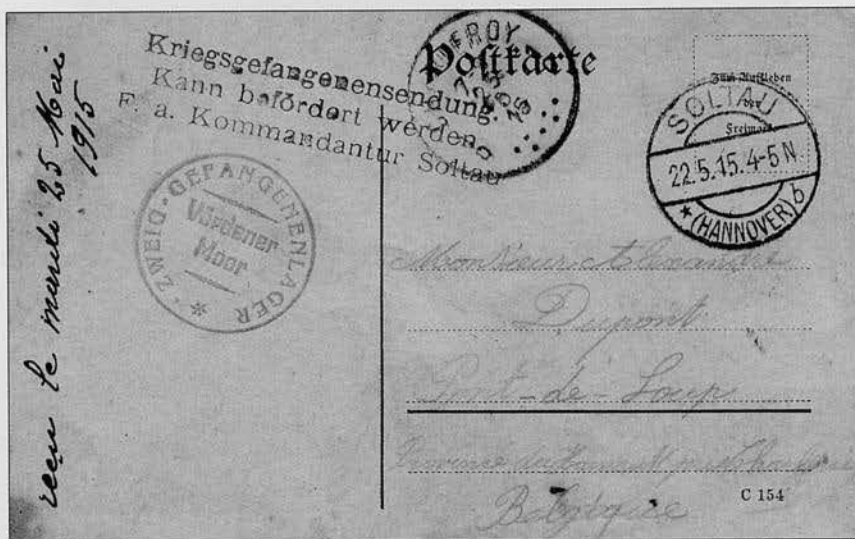 reçu le mardi 25 Mai
1915
Kriegsgefangenensendung.
Kann befördert werden
F. a. Kommandantur Soltau
ZWEIG-GEFANGENENLAGER *
Vördener
Moor
Postkarte
EROY
15
Zum Aufkleben
der
Freimarke
SOLTAU
22.5.15.4-5N
* (HANNOVER) b
Monsieur Alexandre
Dupont
Pont-de-Loup
Province du Hainaut
Belgique
C 154